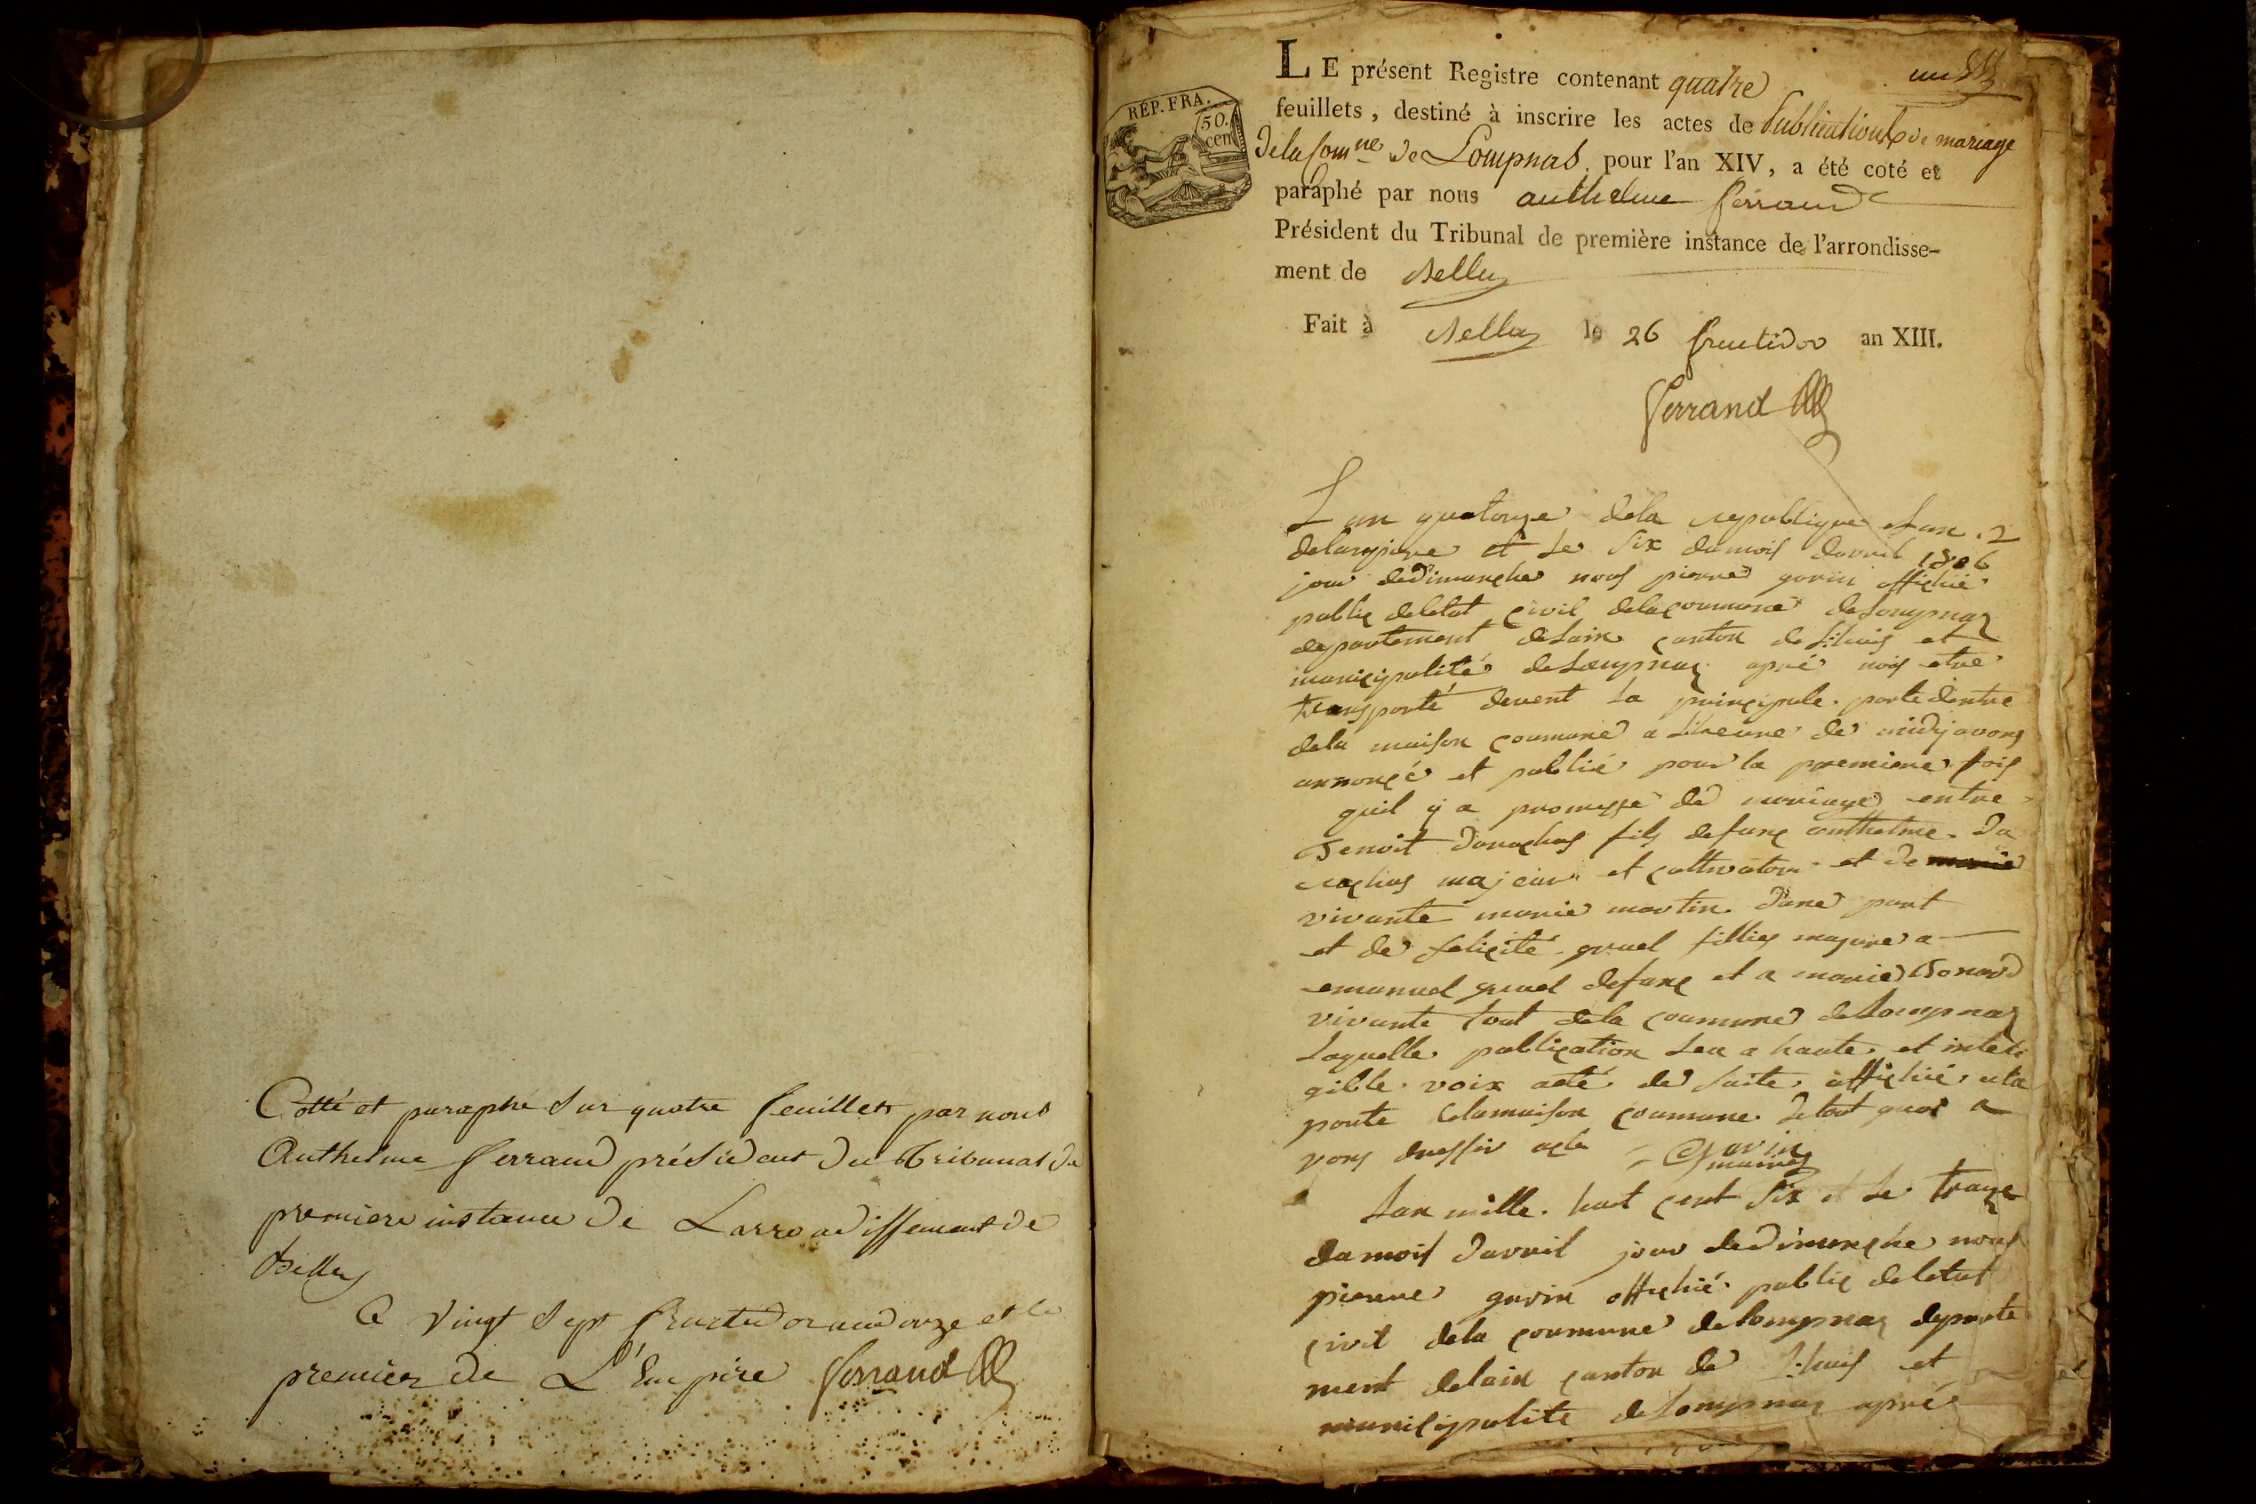 Cotté et paraphé sur quatre feuillets par nous
Anthelme Ferrand président du Tribunal de
premiere instance de L'arrondissement de
Belley
Ce vingt sept fructidor an douze et le
premier de L'Empire Ferrand
un
REP. FRA.
50.
cen
LE présent Registre contenant quatre
feuillets, destiné à inscrire les actes de Publications de mariage
de la Comne de Lompnas, pour l'an XIV, a été coté et
paraphé par nous anthelme ferrand
Président du Tribunal de première instance de l'arrondisse-
ment de Belley
Fait à Belley le 26 fructidor an XIII.
Ferrand
L an quatorze dela republique et an 2
et le six du mois davril 1806
jour dedimanche nous pierre gorin affichié
public deletat civil delacommune delompnaz
departement delain canton de Lhuis et
municipalité delompnaz apré nois etre
transporté devent la principale porte dentre
dela maison coumune a de midi avons
annoncé et publié pour la premiere fois
quil y a promesse de mariage entre
Benoit fils defunc anthelme
majeur et cultivator et de marie
vivante marie martin dune part
et de felicité gruel fillies majure a
emanuel gruel defunc et a marie
vivante tout dela coumune delompnaz
laquelle publication leu a haute et inteli
gible voix aeté de suite affichié ala
porte delamaison coumune detout quoi a
vons dressér acte Gorin
maire
Lan mille huit cent six et le traize
dumois davril jour dedimenche nous
pierre gorin affichié public deletat
civil dela coumune delompnaz departe
ment delain canton de Lhuis et
municipalite delompnaz apré